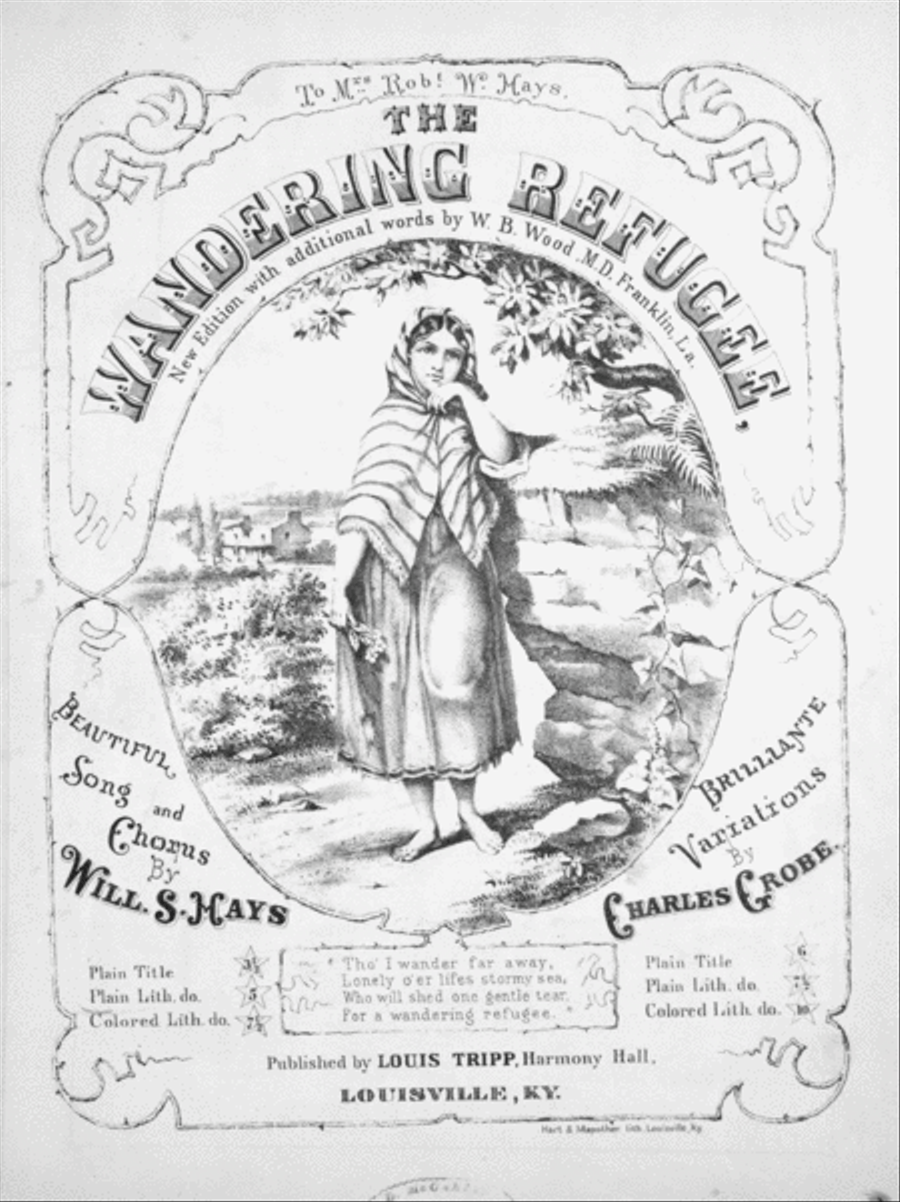 To Mrs Robt. Wm. Hays.
THE
WANDERING REFUGEE,
New Edition with additional words by W. B. Wood M.D. Franklin, La.
BEAUTIFUL
Song and
Chorus
By
WILL. S. HAYS
BRILLIANTE
Variations
By
CHARLES GROBE.
Plain Title 3½
Plain Lith. do. 5
Colored Lith. do. 7½
" Tho' I wander far away,
Lonely o'er lifes stormy sea,
Who will shed one gentle tear,
For a wandering refugee. "
Plain Title 6
Plain Lith. do. 7½
Colored Lith. do. 10
Published by LOUIS TRIPP, Harmony Hall,
LOUISVILLE, KY.
Hart & Mapother lith. Louisville, Ky.